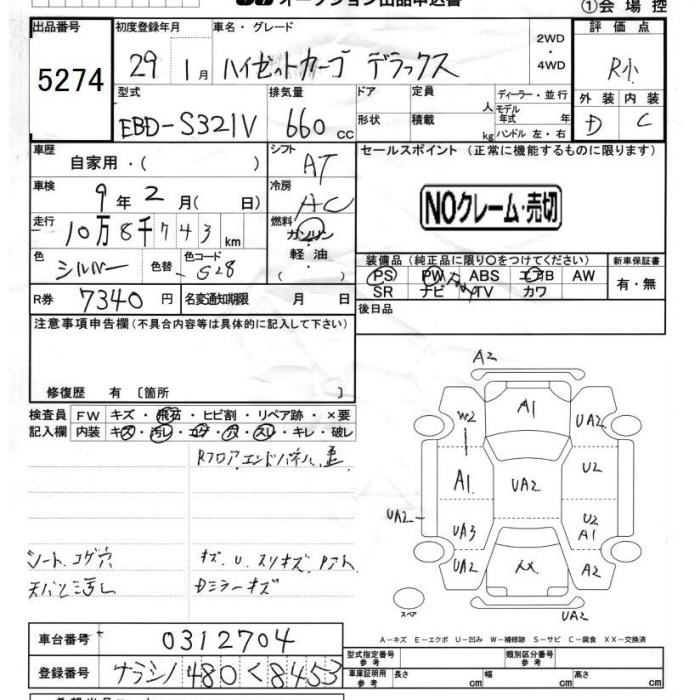 オークション出品申込書
①会場控
出品番号 初度登録年月 車名・グレード 評価点
5274 29 1月 ハイゼットカーゴ デラックス 2WD・4WD R小
型式 排気量 ドア 定員 ディーラー・並行 外装 内装
EBD-S321V 660cc 形状 積載 人 kg モデル年式 年 ハンドル 左・右 D C
車歴 自家用・( ) シフト AT セールスポイント (正常に機能するものに限ります)
車検 9年2月( 日) 冷房 AC
NOクレーム・売切
走行 10万8千743km 燃料 ガソリン
軽油
( )
色 シルバー 色替 色コード S28
装備品(純正品に限り○をつけてください) 新車保証書
PS PW ABS エアB AW 有・無
SR ナビ TV カワ
R券 7340円 名変通知期限 月 日
後日品
注意事項申告欄(不具合内容等は具体的に記入して下さい)
修復歴 有 [箇所 ]
検査員 FW キズ・飛石・ヒビ割・リペア跡・×要
記入欄 内装 キズ・汚レ・コゲ・穴・スレ・キレ・破レ
Rフロア、エンドパネル
シート コゲ穴
キズ、U、スリキズ
天バリ汚レ
Dミラーキズ
A2
A1
W2
UA2
A1
UA2
U2
UA2
UA3
U2
A1
UA2
XX
A2
スペア
UA2
A-キズ E-エクボ U-凹み W-補修跡 S-サビ C-腐食 XX-交換済
車台番号 0312704
型式指定番号 参考 類別区分番号 参考
登録番号 ナラシノ 480 く 8453
車庫証明用 参考 長さ cm 幅 cm 高さ cm